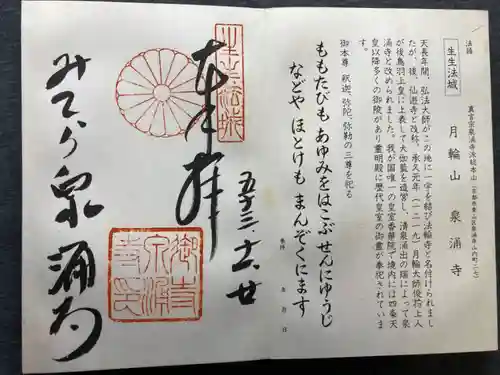 法語
生生法城
真言宗泉涌寺派総本山(京都市東山区泉涌寺山内町二七)
月輪山 泉涌寺
天長年間、弘法大師がこの地に一宇を結び法輪寺と名付けられまし
たが、後、仙遊寺と改称、承久元年(一二一九)月輪大師俊芿上人
が後鳥羽上皇に上表して大伽藍を造営し、清泉涌出の瑞によって泉
涌寺と改められました。我が国唯一の皇室香華院で境内には四条天
皇以降多くの御陵があり霊明殿に歴代皇室の御霊が奉祀されていま
す。
御本尊 釈迦、弥陀、弥勒の三尊を祀る
ももたびも あゆみをはこぶ せんにゅうじ
などや ほとけも まんぞくにます
奉拝 年 月 日
生生法城
奉拝
五十三、十一、廿
みてら泉涌寺
御寺泉涌寺